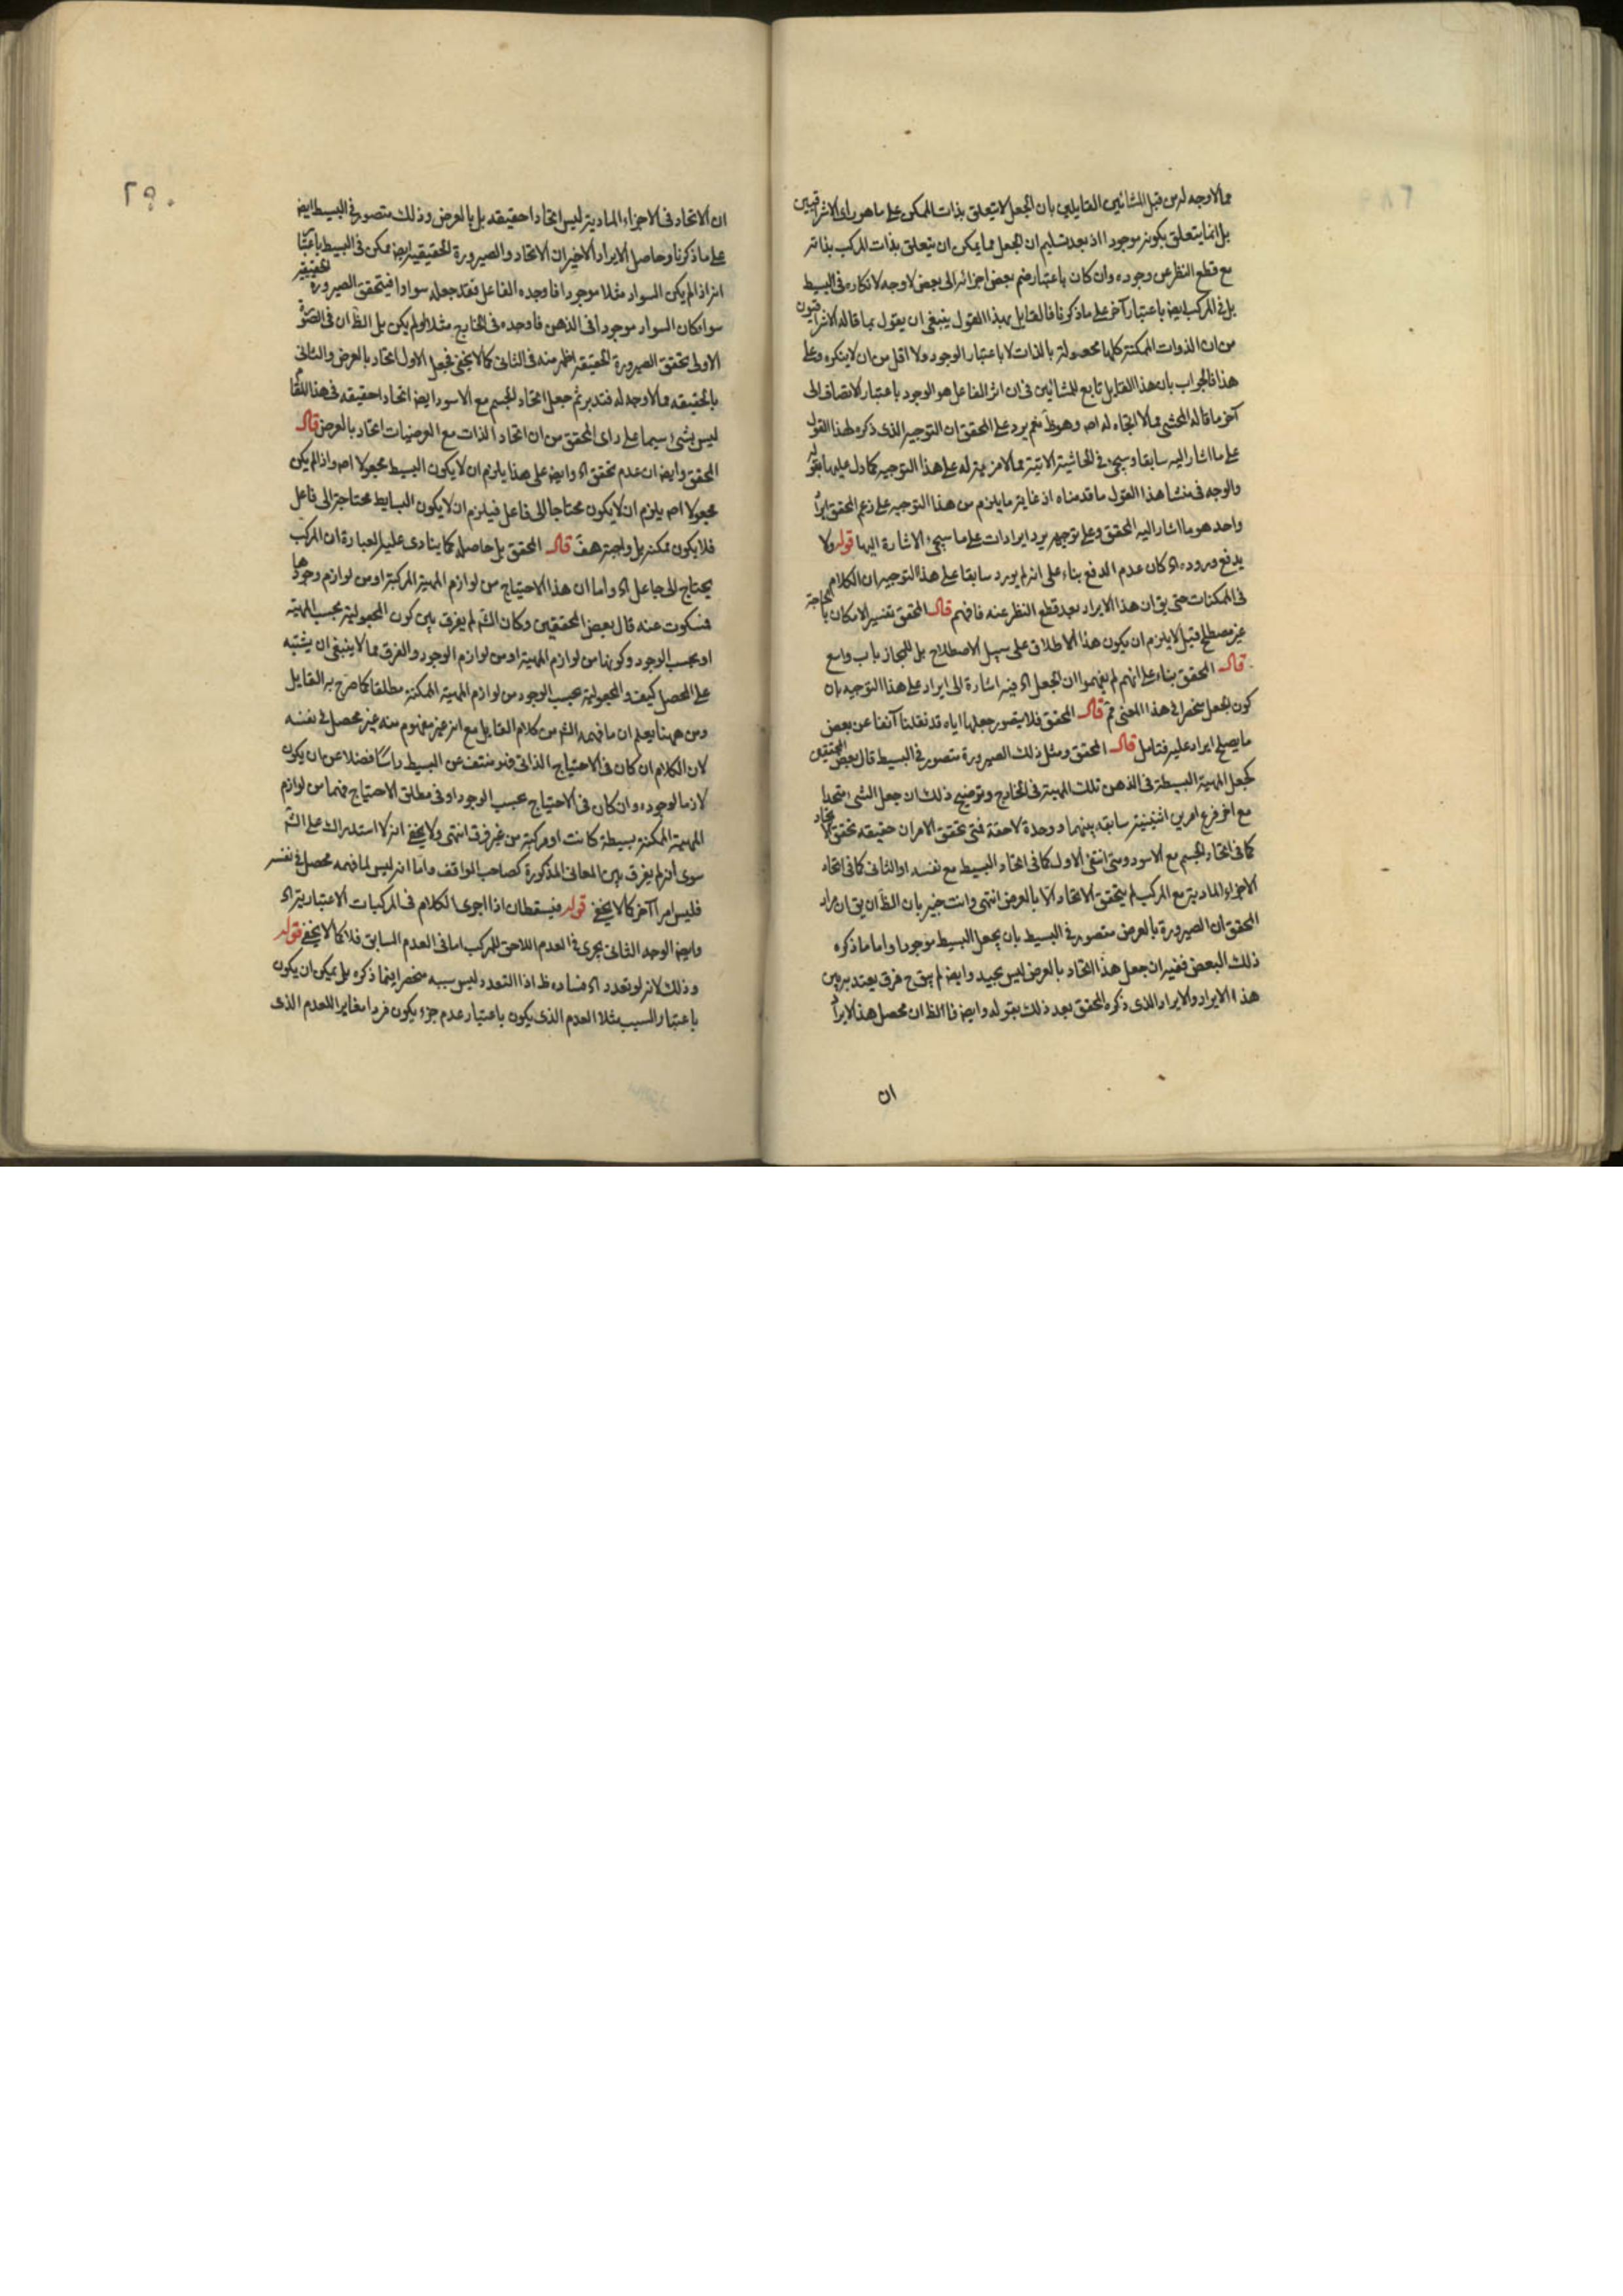 مما لا وجه له من قبل المشائين القايلين بان الجعل لا يتعلق بذات الممكن على ما هو راى الاشراقيين
بل انما يتعلق بكونه موجودا اذ بعد تسليم ان الجعل مما يمكن ان يتعلق بذات المركب بذاته
مع قطع النظر عن وجوده وان كان باعتبار ضم بعض اجزائه الى بعض لا وجه لانكاره فى البسيط
بل فى المركب ايضا باعتبار آخر على ما ذكرنا فالقايل بهذا القول ينبغى ان يقول بما قاله الاشراقيون
من ان الذوات الممكنة كلها مجعولة بالذات لا باعتبار الوجود ولا اقل من ان لا ينكره وعلى
هذا فالجواب بان هذا القايل تابع للمشائين فى ان اثر الفاعل هو الوجود باعتبار الاتصاف الى
آخر ما قاله المحشى مما لا اتجاه له اصه وهو ظ نعم يرد على المحقق ان التوجيه الذى ذكره لهذا القول
على ما اشار اليه سابقا وسيجئ فى الحاشية الاتية مما لا مزية له على هذا التوجيه كما دل عليه بقوله
والوجه فى منشا هذا القول ما قدمناه اذ غاية ما يلزم من هذا التوجيه على زعم المحقق ايراد
واحد هو ما اشار اليه المحقق وعلى توجيهه يرد ايرادات على ما سيجئ الاشارة اليها قوله ولا
يدفع وروده اه كان عدم الدفع بناء على انه لم يورد سابقا على هذا التوجيه ان الكلام
فى الممكنات حتى يق ان هذا الايراد بعد قطع النظر عنه فافهم قال المحقق تفسير الامكان بالحاجة
غير مصطلح قبل لا يلزم ان يكون هذا الاطلاق على سبيل الاصطلاح بل المجاز باب واسع
قال المحقق بناء على انهم لم يفهموا ان الجعل اه فيه اشارة الى ايراد على هذا التوجيه بان
كون الجعل منحصرا فى هذا المعنى مم قال المحقق فلا يتصور جعلها اياه قد نقلنا آنفا عن بعض
ما يصلح ايراد عليه فتامل قال المحقق ومثل ذلك الصيرورة متصور فى البسيط قال بعض المحققين
كجعل المهية البسيطة فى الذهن تلك المهية فى الخارج وتوضيح ذلك ان جعل الشئ متحدا
مع آخر فرع امرين اثنينية سابقة بينهما ووحدة لاحقة فمتى تحقق الامران حقيقه تحقق الاتحاد
كما فى اتحاد الجسم مع الاسود ومتى انتفى الاول كما فى اتحاد البسيط مع نفسه او الثانى كما فى اتحاد
الاجزاء المادية مع المركب لم يتحقق الاتحاد الا بالعرض انتهى وانت خبير بان الظ ان يق ان مراد
المحقق ان الصيرورة بالعرض متصور فى البسيط بان يجعل البسيط موجودا واما ما ذكره
ذلك البعض ففيه ان جعل هذا اتحاد بالعرض ليس بجيد وايضا لم يبق ح فرق يعتد به بين
هذا الايراد والايراد الذى ذكره المحقق بعد ذلك بقوله وايضا فالظ ان محصل هذا الايراد
ان
٢٩٠
ان الاتحاد فى الاجزاء المادية ليس اتحادا حقيقه بل بالعرض وذلك متصور فى البسيط ايضا
على ما ذكرنا وحاصل الايراد الاخير ان الاتحاد والصيرورة الحقيقية ايضا ممكن فى البسيط باعتبار
انه اذا لم يكن السواد مثلا موجودا فاوجده الفاعل فقد جعله سوادا فيتحقق الصيرورة الحقيقية
سواء كان السواد موجودا فى الذهن فاوجده فى الخارج مثلا او لم يكن بل الظ ان فى الصورة
الاولى تحقق الصيرورة الحقيقه اظهر منه فى الثانى كما لا يخفى فجعل الاول اتحادا بالعرض والثانى
بالحقيقه مما لا وجه له فتدبر ثم جعل اتحاد الجسم مع الاسود ايضا اتحادا حقيقه فى هذا المقام
ليس بشئ سيما على راى المحقق من ان اتحاد الذات مع العرضيات اتحاد بالعرض قال
المحقق وايضا ان عدم تحقق اه وايضا على هذا يلزم ان لا يكون البسيط مجعولا اصه واذا لم يكن
مجعولا اصه يلزم ان لا يكون محتاجا الى فاعل فيلزم ان لا يكون البسايط محتاجة الى فاعل
فلا يكون ممكنة بل واجبة هف قال المحقق بل حاصله كما ينادى عليه العبارة ان المركب
يحتاج الى جاعل اه واما ان هذا الاحتياج من لوازم المهية المركبة او من لوازم وجودها
فسكوت عنه قال بعض المحققين وكان الش لم يفرق بين كون المجعولية بحسب المهية
او بحسب الوجود وكونها من لوازم المهية او من لوازم الوجود والفرق مما لا ينبغى ان يشتبه
على المحصل كيف والمجعولية بحسب الوجود من لوازم المهية الممكنة مطلقا كما صرح به القايل
ومن ههنا يعلم ان ما فهمه الش من كلام القايل مع انه غير مفهوم منه غير محصل فى نفسه
لان الكلام ان كان فى الاحتياج الذاتى فهو منتف عن البسيط راسا فضلا عن ان يكون
لازما لوجوده وان كان فى الاحتياج بحسب الوجود او فى مطلق الاحتياج فهما من لوازم
المهية الممكنة بسيطة كانت او مركبة من غير فرق انتهى ولا يخفى انه لا استدراك على الش
سوى انه لم يفرق بين المعانى المذكورة كصاحب المواقف واما انه ليس لما فهمه محصل فى نفسه
فليس امرا آخر كما لا يخفى قوله فيسقطان اذا اجرى الكلام فى المركبات الاعتبارية اه
وايضا الوجه الثانى يجرى فى العدم اللاحق للمركب اما فى العدم السابق فلا كما لا يخفى قوله
وذلك لانه لو تعدد اه فساده ظ اذا التعدد ليس سببه منحصرا فيما ذكره بل يمكن ان يكون
باعتبار السبب مثلا العدم الذى يكون باعتبار عدم جزء يكون فردا مغايرا للعدم الذى